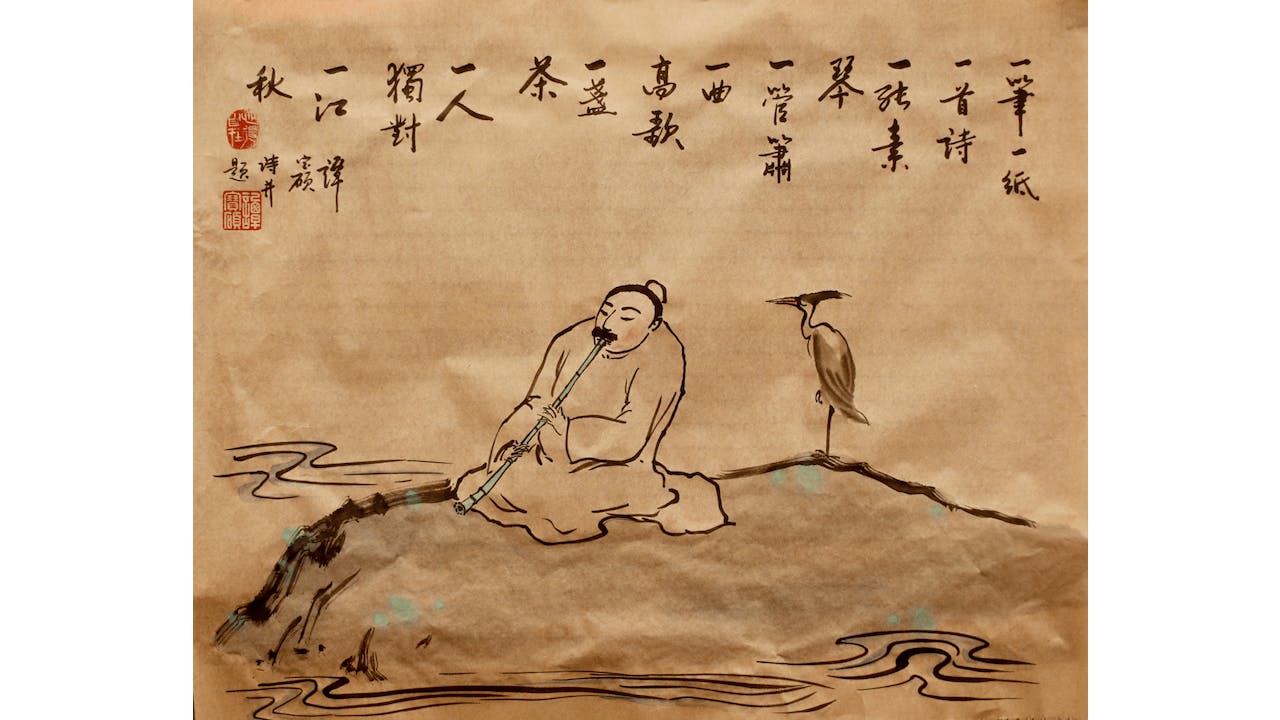 一筆一紙
一首詩
一張素
琴
一管簫
一曲
高歌
一盞
茶
一人
獨對
一江
秋
譚
宝碩
诗并
題